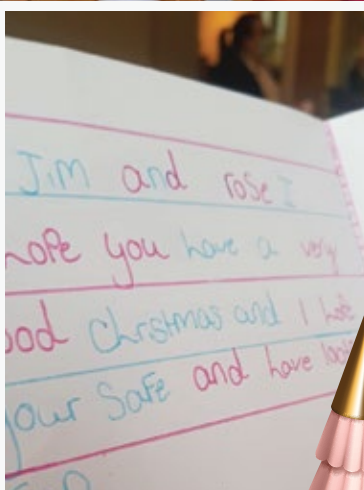 Jim and rose I
hope you have a very
ood christmas and I hope
your Safe and have